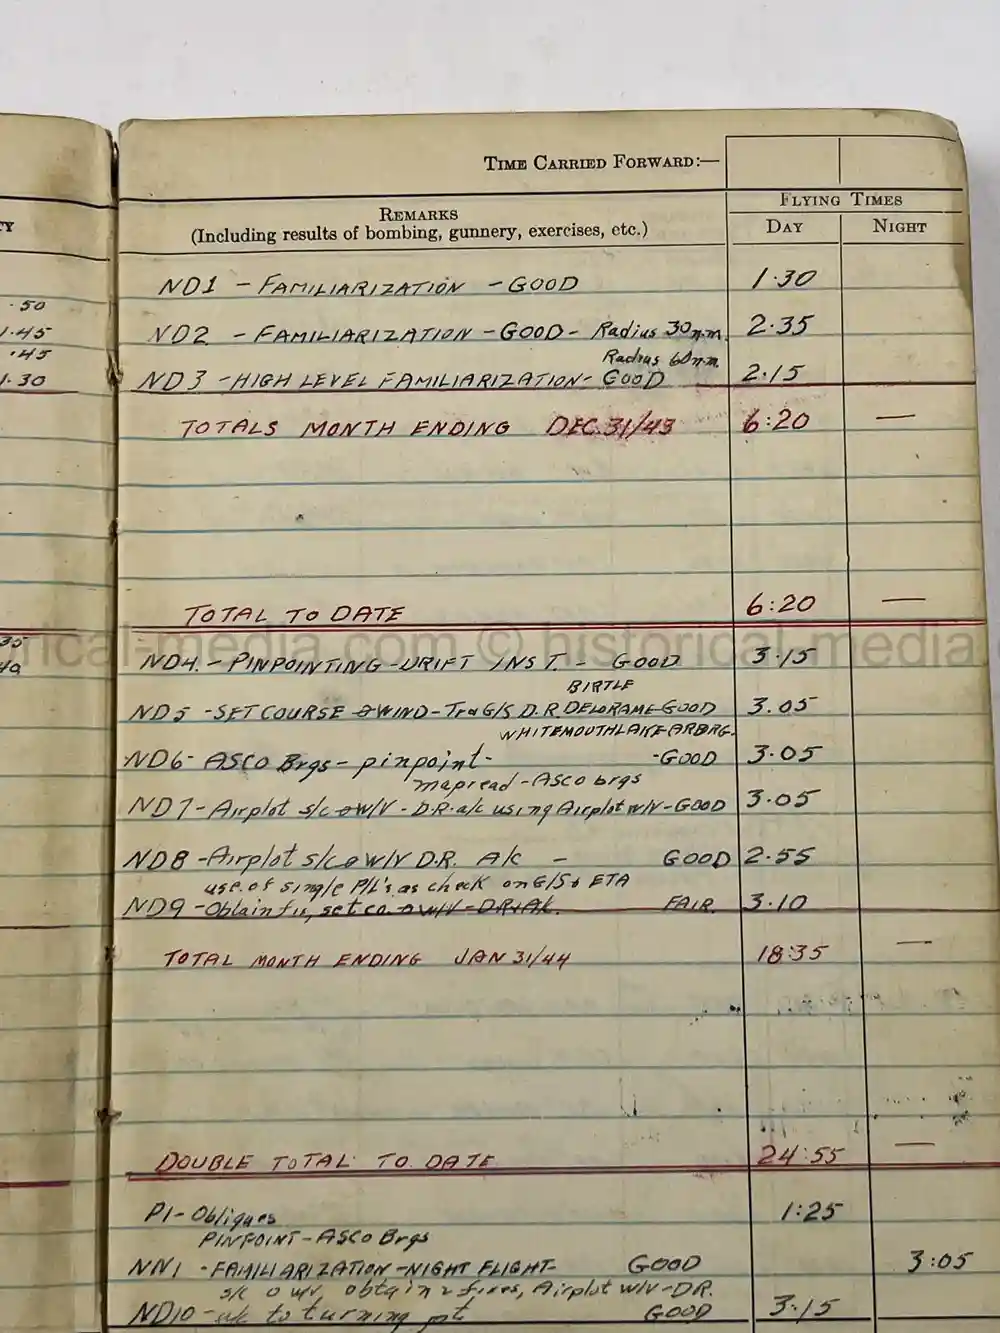 TIME CARRIED FORWARD:—
FLYING TIMES
TY
REMARKS
(Including results of bombing, gunnery, exercises, etc.)
DAY NIGHT
ND1 - FAMILIARIZATION - GOOD 1·30
·50
ND2 - FAMILIARIZATION - GOOD - Radius 30 n.m. 2·35
1·45
·45
Radius 60 n.m.
1·30
ND3 - HIGH LEVEL FAMILIARIZATION - GOOD 2·15
TOTALS MONTH ENDING DEC. 31/43 6:20 —
TOTAL TO DATE 6:20 —
35
historical-media.com © historical-media
ND4 - PINPOINTING - DRIFT INST. - GOOD 3·15
BIRTLE
ND5 - SET COURSE WIND - Tr G/S D.R. DELORAME-GOOD 3.05
WHITEMOUTHLAKE
ND6 - ASCO Brgs - pinpoint - - GOOD 3·05
mapread - ASCO brgs
ND7 - Airplot s/c w/v - D.R. a/c using Airplot w/v - GOOD 3·05
ND8 - Airplot s/c w/v D.R. A/c - GOOD 2·55
use of single P/L's as check on G/S & ETA
ND9 - Obtain fix, set co. w/v - FAIR. 3·10
TOTAL MONTH ENDING JAN 31/44 18:35 —
DOUBLE TOTAL TO DATE 24:55 —
P1 - Obliques 1:25
PINPOINT - ASCO Brgs
NN1 - FAMILIARIZATION - NIGHT FLIGHT - GOOD 3:05
s/c w/v, obtain 2 fixes, Airplot w/v - D.R.
ND10 - a/c to turning pt GOOD 3·15